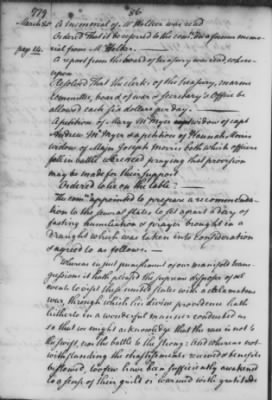 779 86
March 20 A memorial of Mr Holker was read
Ordered That it be referred to the comee on a former memo-
page 14. rial from Mr Holker.
A report from the board of treasury was read where-
upon
Resolved That the clerks of the treasury, marine
Committee, board of war & Secretary's Office be
allowed each six dollars per day.
A petition of Mary McMyer widow of capt
Andrew McMyer & a petition of Hannah Morris
widow of Major Joseph Morris both which officers
fell in battle were read praying that provision
may be made for their support
Ordered to lie on the table
The comee appointed to prepare a recommenda-
tion to the several states to set apart a day of
fasting humiliation & prayer brought in a
draught which was taken into consideration
& agreed to as follows
Whereas in just punishment of our manifold trans-
gressions it hath pleased the supreme disposer of all
events to visit these united states with a calamitous
war, through which his divine providence hath
hitherto in a wonderful manner conducted us
so that we might acknowledge that the race is not to
the swift, nor the battle to the strong: And whereas not-
withstanding the chastisements received & benefits
bestowed, too few have been sufficiently awakened
to a sense of their guilt or warmed with gratitude